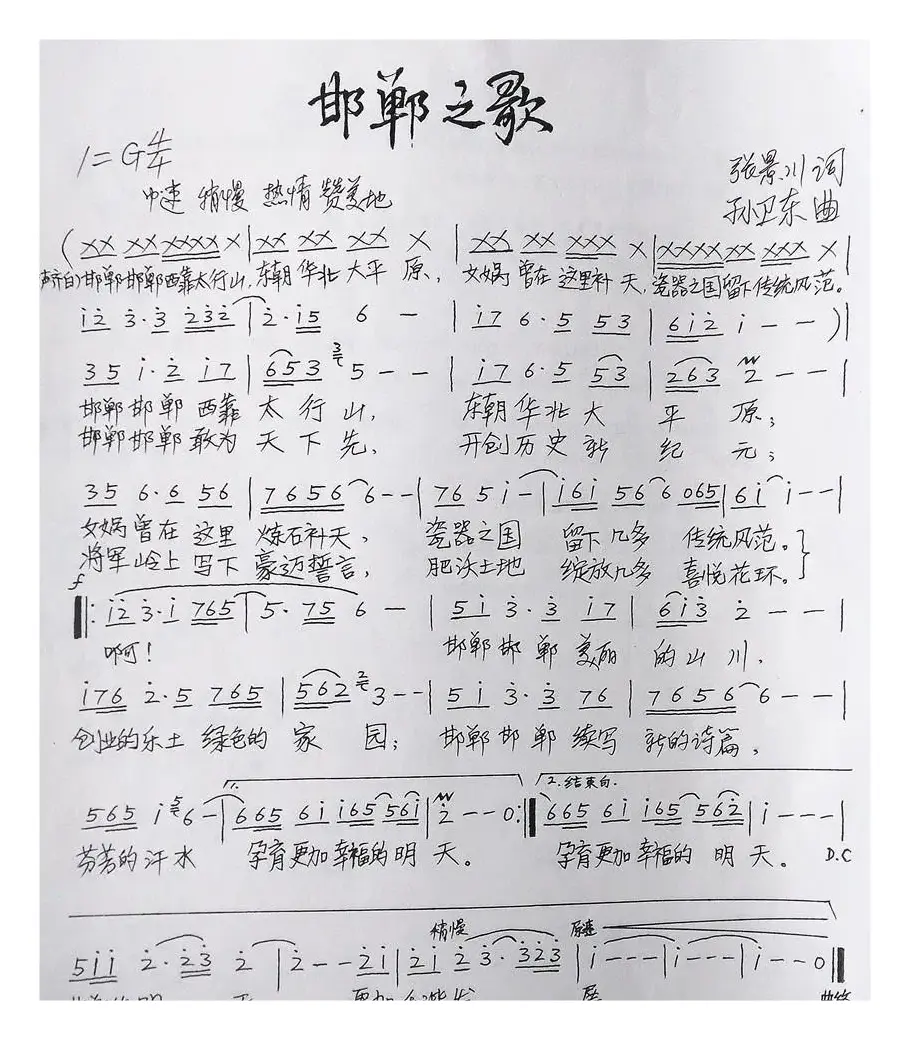 邯郸之歌
1=G 4/4
张景川 词
中速 稍慢 热情 赞美地
孙卫东 曲
(XX XX XXXX X | XX XX XX X | XX XX XXX X | XXXX XX XXX X |
齐白)邯郸邯郸西靠太行山,东朝华北大平原,女娲曾在这里补天,瓷器之国留下传统风范。
i2 3·3 232 | 2·i5 6 - | i7 6·5 53 | 6i2 i - - ) |
35 i·2 i7 | 653 3 5 - - | i7 6·5 53 | 263 2 - - |
邯郸邯郸西靠太行山, 东朝华北大平原;
邯郸邯郸敢为天下先, 开创历史新纪元;
35 6·6 56 | 7656 6 - - | 76 5 i - | i6i 56 6 065 | 6i i - - |
女娲曾在这里炼石补天, 瓷器之国 留下几多 传统风范。
将军岭上写下豪迈誓言, 肥沃土地 绽放几多 喜悦花环。
f
‖: i2 3·i 765 | 5·75 6 - | 5i 3·3 i7 | 6i3 2 - - |
啊! 邯郸邯郸美丽的山川,
i76 2·5 765 | 562 2 3 - - | 5i 3·3 76 | 7656 6 - - |
创业的乐土绿色的家园; 邯郸邯郸续写新的诗篇,
1. 2.结束句.
565 i 5 6 - | 665 6i i65 56i | 2 - - 0 :‖ 665 6i i65 562 | i - - - |
芬芳的汗水 孕育更加幸福的明天。 孕育更加幸福的明天。 D.C
稍慢 原速
5ii 2·23 2 | 2 - - 2i | 2i 2 3·323 | i - - - | i - - - | i - - 0 ‖